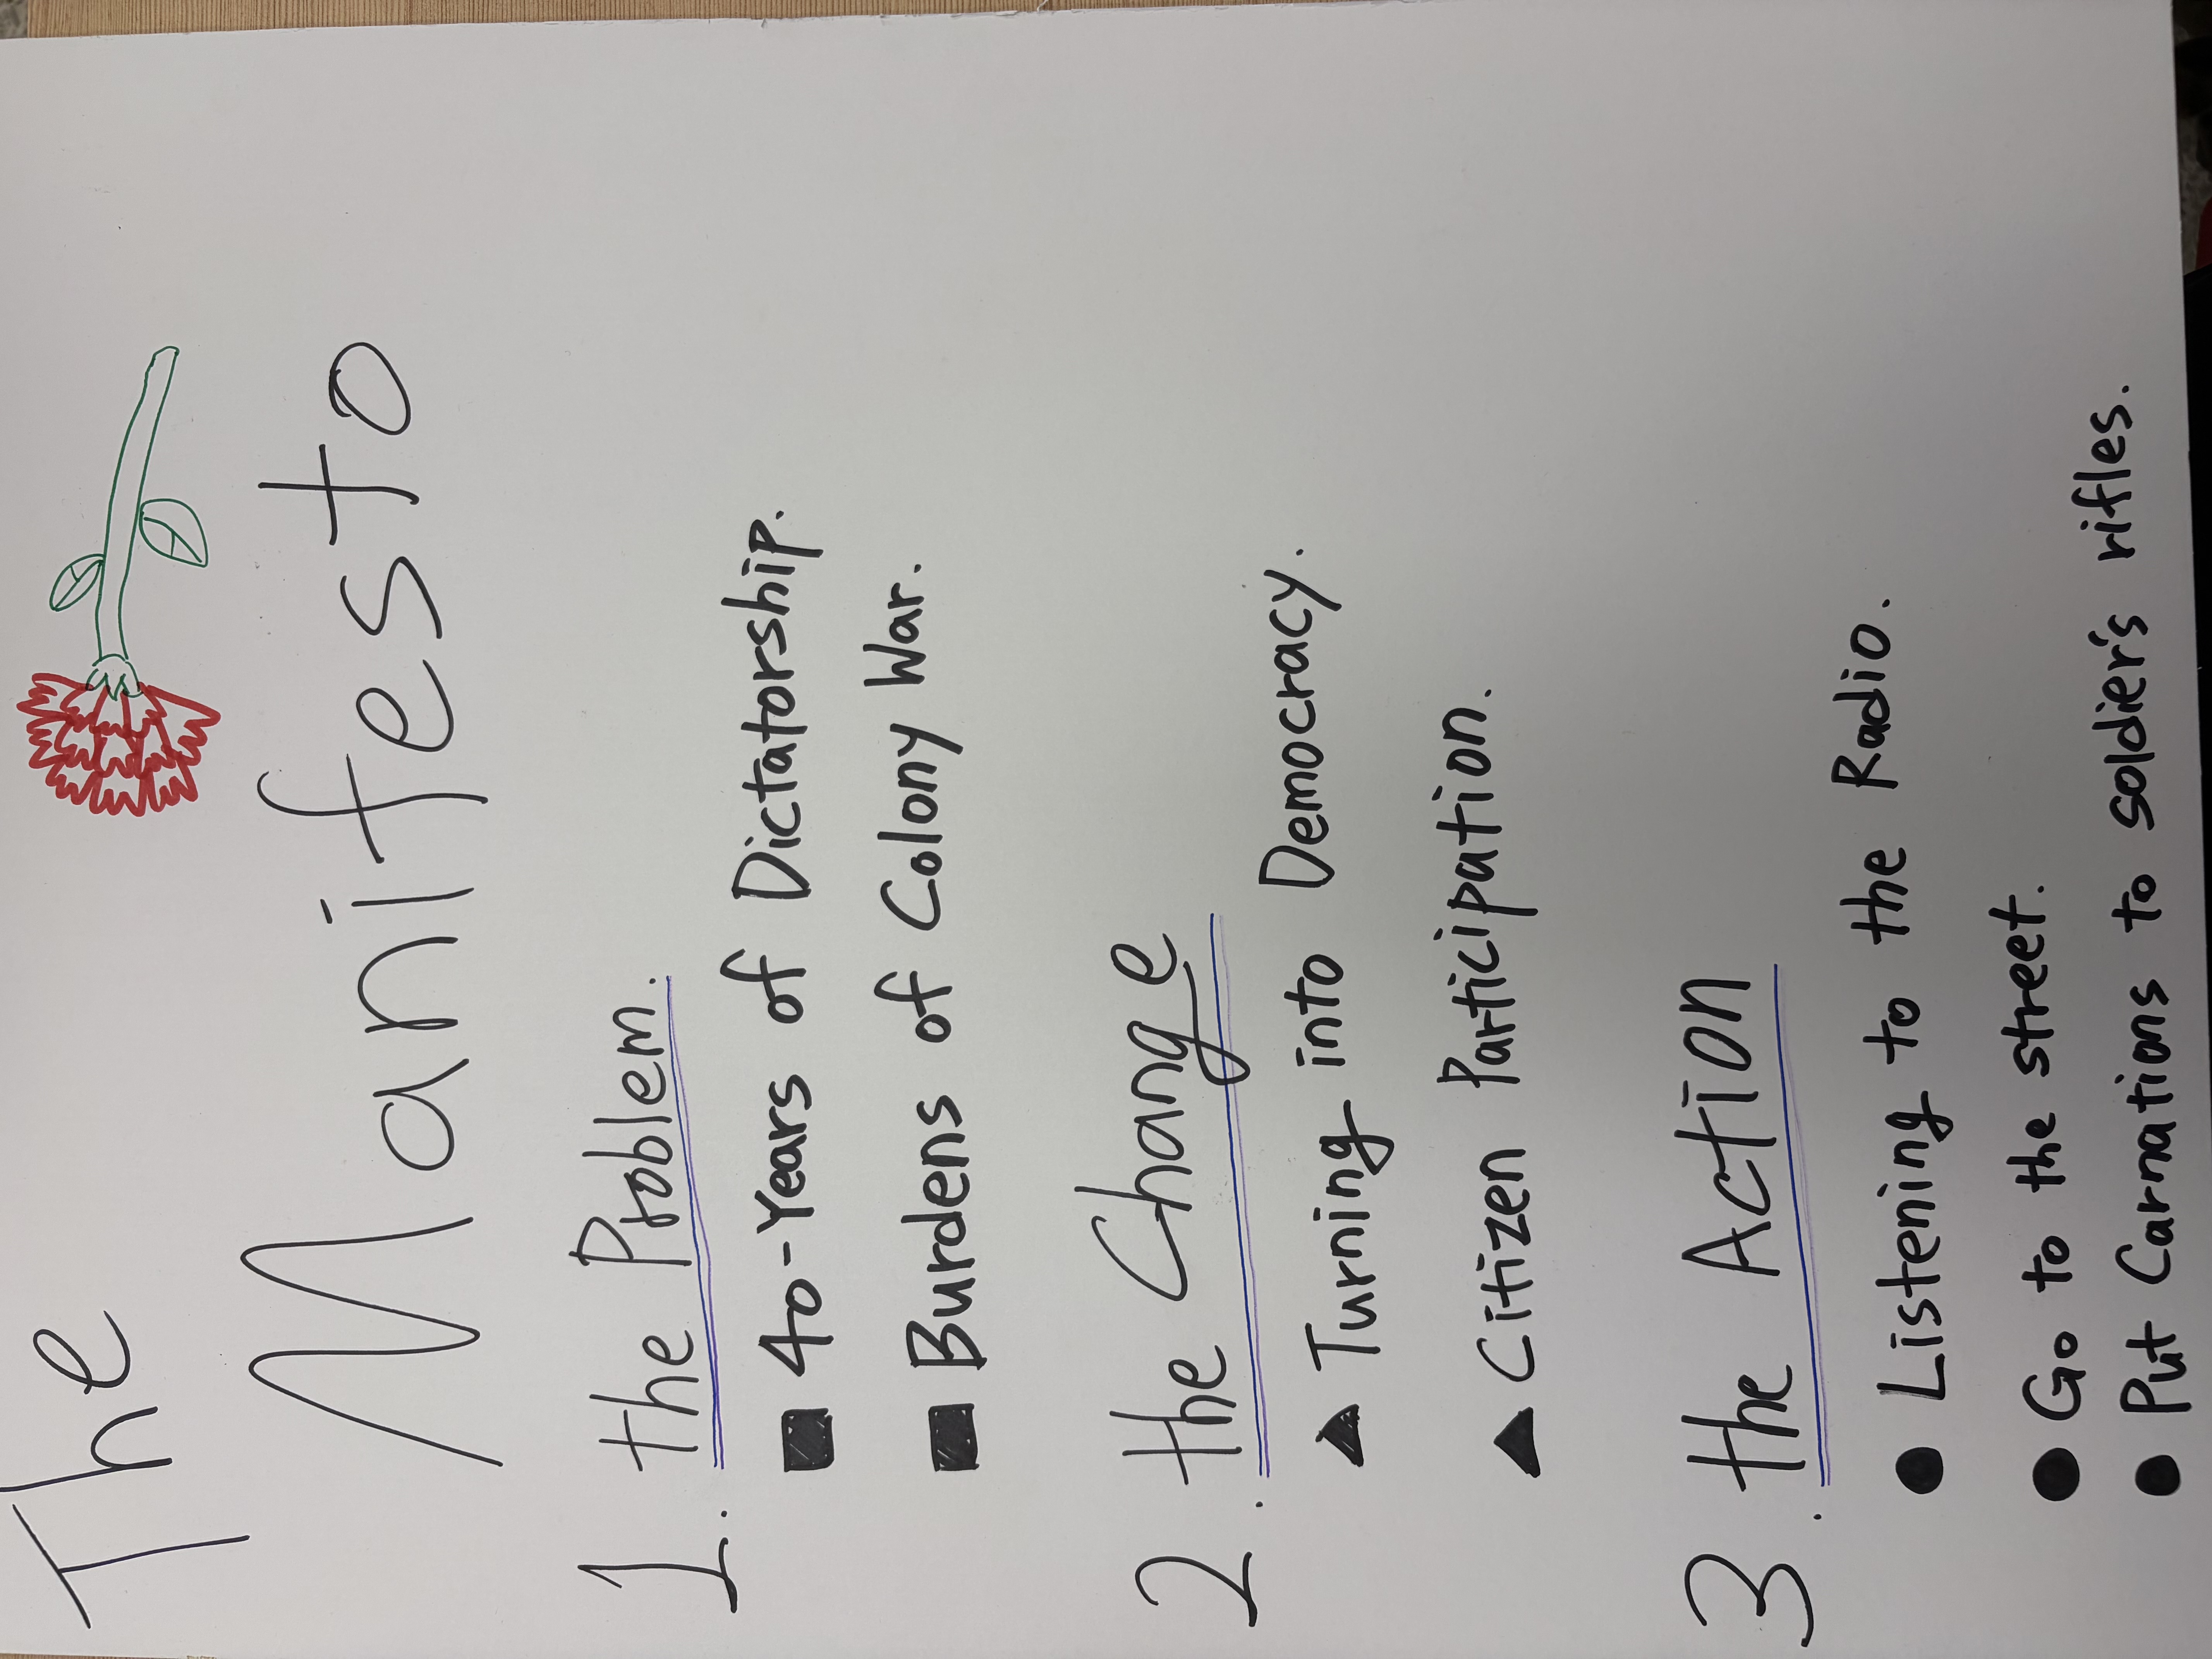 The
Manifesto
1. the Problem.
■ 40-Years of Dictatorship.
■ Burdens of Colony War.
2. the Change
▲ Turning into Democracy.
▲ Citizen Participation.
3. the Action
● Listening to the Radio.
● Go to the street.
● Put Carnations to soldier's rifles.